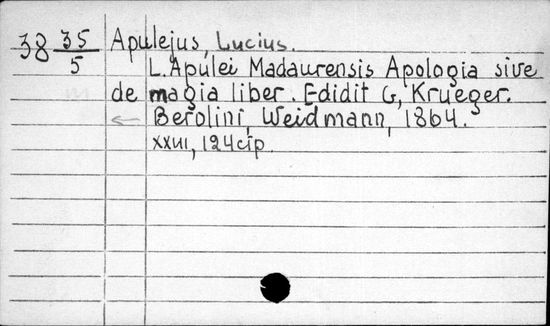 38 35/5 Apulejus, Lucius.
L. Apulei Madaurensis Apologia sive
de magia liber. Edidit G, Krueger.
Berolini, Weidmann, 1864.
XXIII, 124 cip.